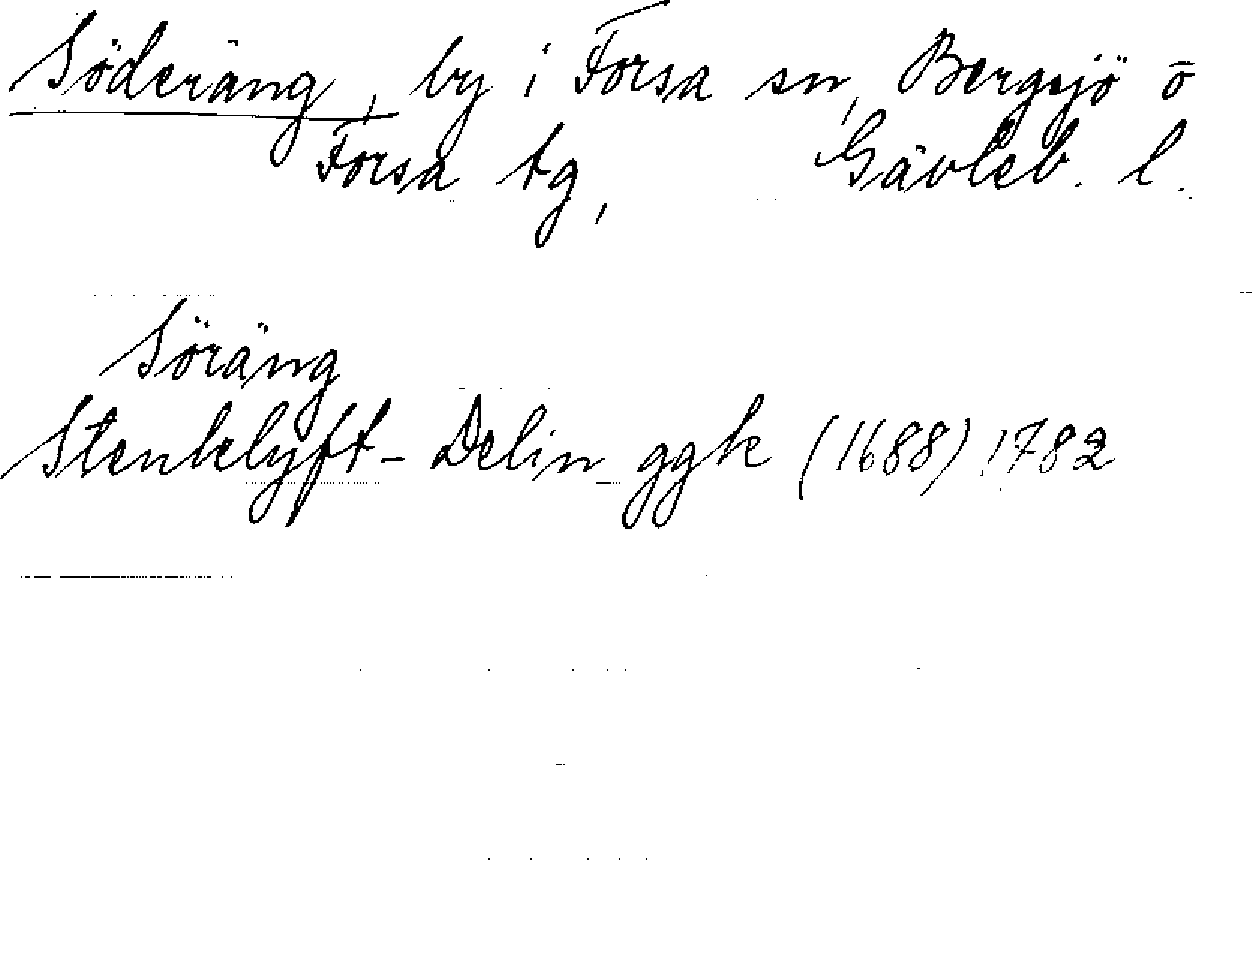 Söderäng, by i Forsa sn, Bergsjö o
Forsa tg, Gävleb. l.
Söräng
Stenklyft - Delin ggk (1688) 1782